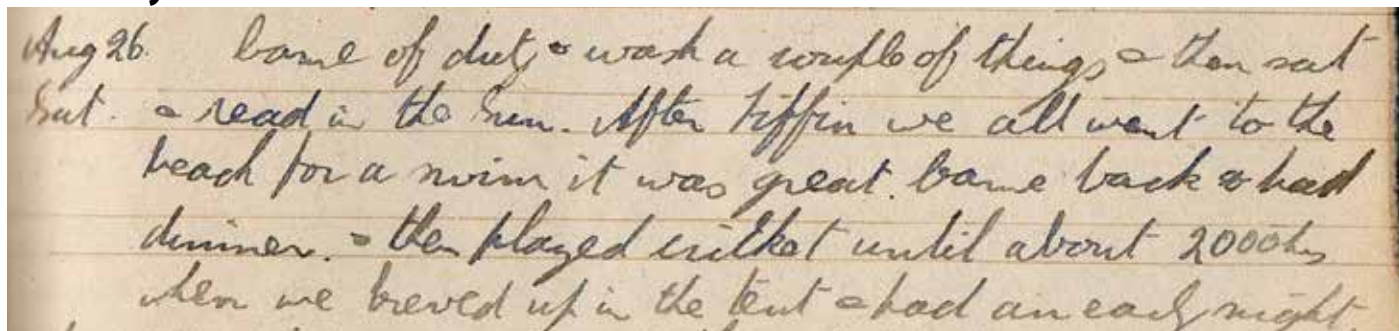 Aug 26. Came of duty & wash a couple of things & then sat
Sat. & read in the Sun. After Tiffin we all went to the
beach for a swim it was great. Came back & had
dinner. & then played cricket until about 2000hrs
when we brewed up in the tent & had an early night